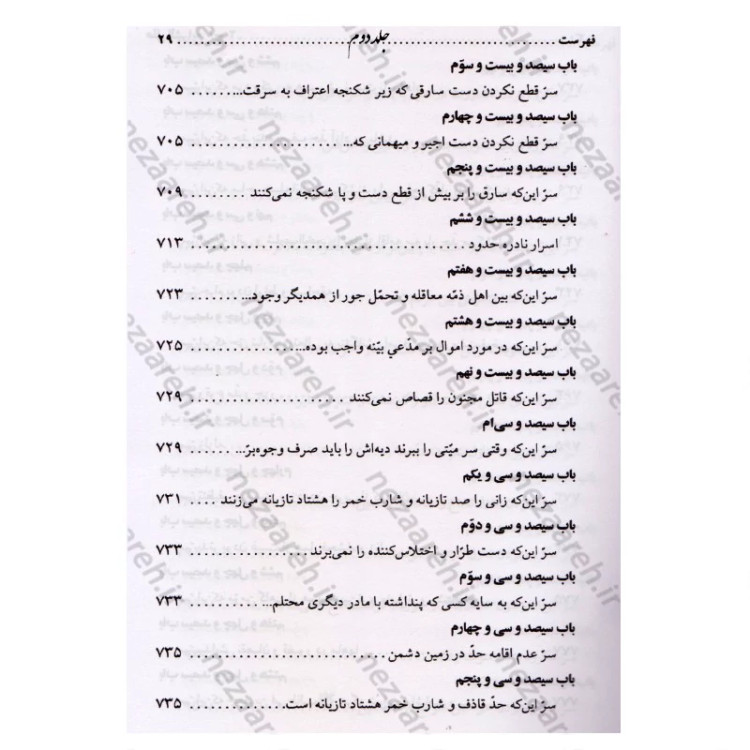 فهرست ........................ جلد دوم ........................ ۲۹
باب سیصد و بیست و سوّم
سرّ قطع نکردن دست سارقی که زیر شکنجه اعتراف به سرقت... ........ ۷۰۵
باب سیصد و بیست و چهارم
سرّ قطع نکردن دست اجیر و میهمانی که... ...................... ۷۰۵
باب سیصد و بیست و پنجم
سرّ این‌که سارق را بر بیش از قطع دست و پا شکنجه نمی‌کنند ........ ۷۰۹
باب سیصد و بیست و ششم
اسرار نادره حدود ........................................ ۷۱۳
باب سیصد و بیست و هفتم
سرّ این‌که بین اهل ذمّه معاقله و تحمّل جور از همدیگر وجود... ....... ۷۲۳
باب سیصد و بیست و هشتم
سرّ این‌که در مورد اموال بر مدّعي بیّنه واجب بوده... ............ ۷۲۵
باب سیصد و بیست و نهم
سرّ این‌که قاتل مجنون را قصاص نمی‌کنند ................... ۷۲۹
باب سیصد و سی‌ام
سرّ این‌که وقتی سر میّتی را ببرند دیه‌اش را باید صرف وجوه‌برّ... ...... ۷۲۹
باب سیصد و سی و یکم
سرّ این‌که زانی را صد تازیانه و شارب خمر را هشتاد تازیانه می‌زنند .... ۷۳۱
باب سیصد و سی و دوّم
سرّ این‌که دست طرّار و اختلاس‌کننده را نمی‌برند ................ ۷۳۳
باب سیصد و سی و سوّم
سرّ این‌که به سایه کسی که پنداشته با مادر دیگری محتلم... ......... ۷۳۳
باب سیصد و سی و چهارم
سرّ عدم اقامه حدّ در زمین دشمن .......................... ۷۳۵
باب سیصد و سی و پنجم
سرّ این‌که حدّ قاذف و شارب خمر هشتاد تازیانه است. ............ ۷۳۵
nezaareh.ir